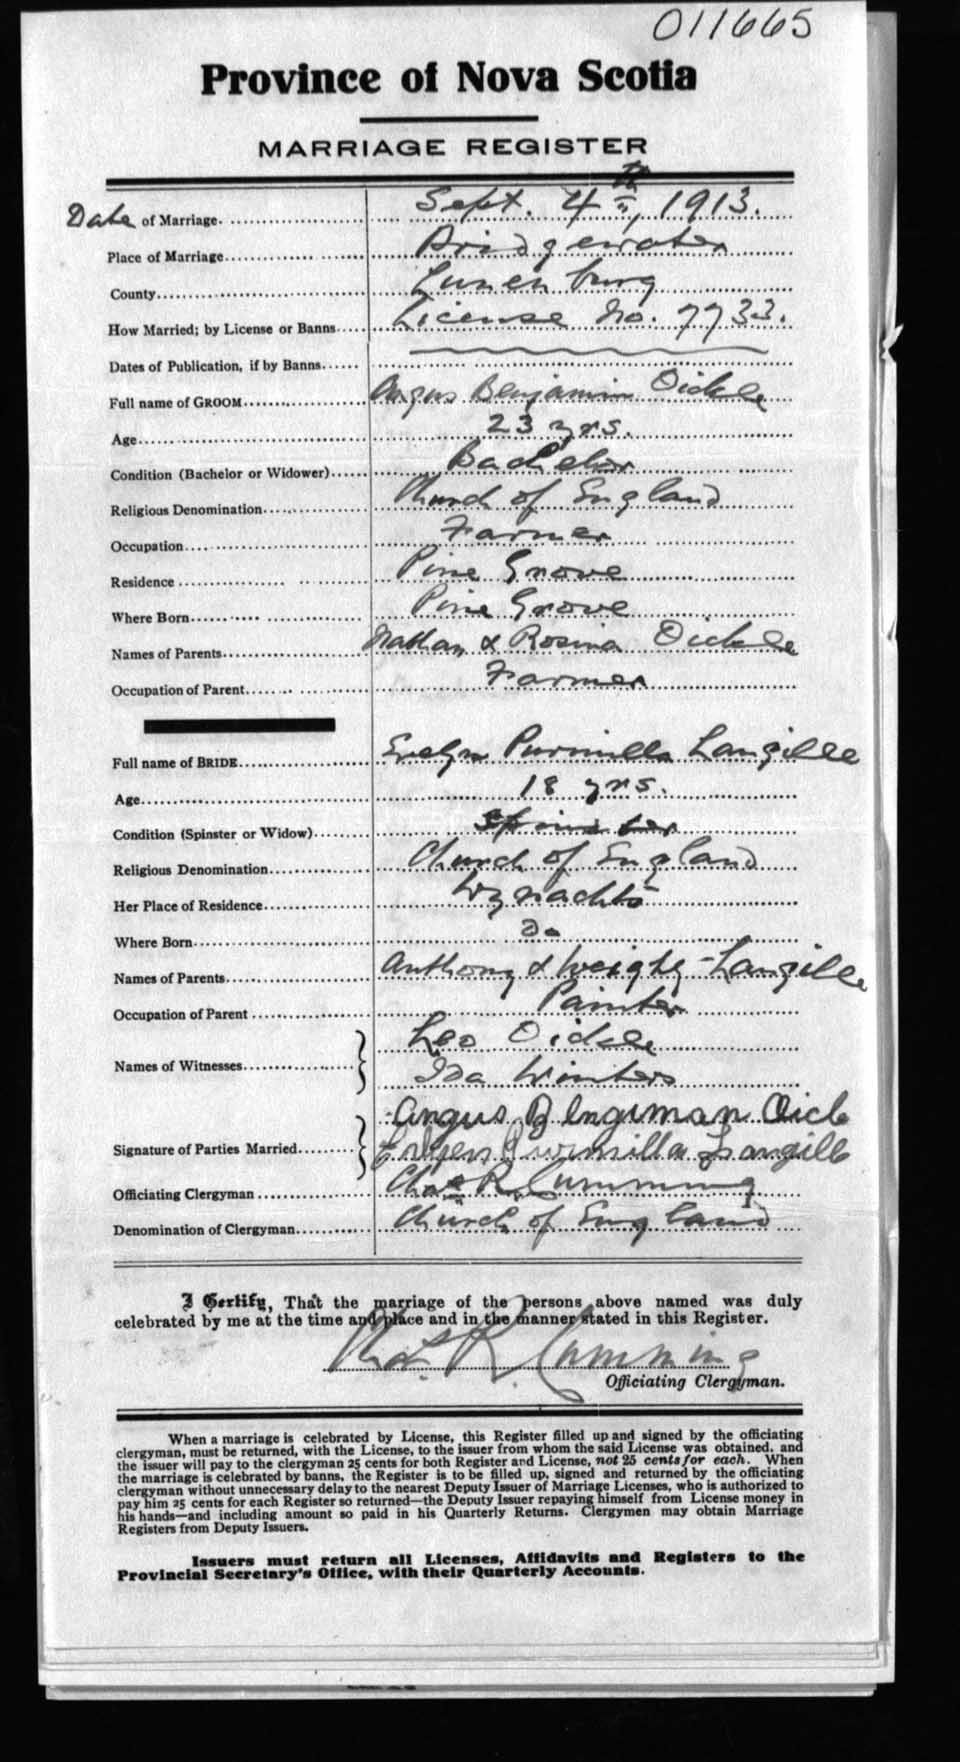 011665
Province of Nova Scotia
MARRIAGE REGISTER
Date of Marriage. Sept. 4th, 1913.
Place of Marriage Bridgewater
County Lunenburg
How Married; by License or Banns License No. 7733.
Dates of Publication, if by Banns
Full name of GROOM Angus Benjamin Oickle
Age 23 yrs.
Condition (Bachelor or Widower) Bachelor
Religious Denomination Church of England
Occupation Farmer
Residence Pine Grove
Where Born Pine Grove
Names of Parents Nathan & Rosina Oickle
Occupation of Parent Farmer
Full name of BRIDE Evelyn Purmilla Langille
Age 18 yrs.
Condition (Spinster or Widow) Spinster
Religious Denomination Church of England
Her Place of Residence Wynachts
Where Born Do
Names of Parents Anthony & Langille
Occupation of Parent Painter
Names of Witnesses Leo Oickle
Ida Winters
Signature of Parties Married Angus Oicle
Purmilla Langille
Officiating Clergyman Chas R. Cumming
Denomination of Clergyman Church of England
I Certify, That the marriage of the persons above named was duly
celebrated by me at the time and place and in the manner stated in this Register.
Chas. R. Cumming
Officiating Clergyman.
When a marriage is celebrated by License, this Register filled up and signed by the officiating
clergyman, must be returned, with the License, to the issuer from whom the said License was obtained, and
the issuer will pay to the clergyman 25 cents for both Register and License, not 25 cents for each. When
the marriage is celebrated by banns, the Register is to be filled up, signed and returned by the officiating
clergyman without unnecessary delay to the nearest Deputy Issuer of Marriage Licenses, who is authorized to
pay him 25 cents for each Register so returned—the Deputy Issuer repaying himself from License money in
his hands—and including amount so paid in his Quarterly Returns. Clergymen may obtain Marriage
Registers from Deputy Issuers.
Issuers must return all Licenses, Affidavits and Registers to the
Provincial Secretary's Office, with their Quarterly Accounts.